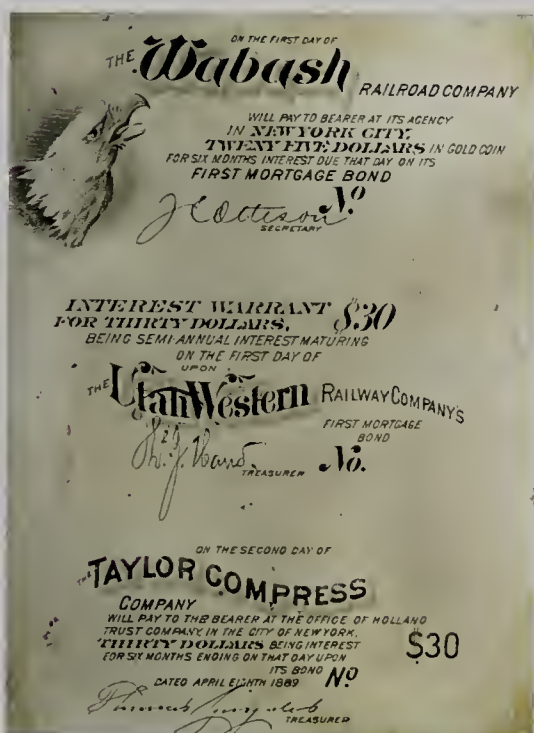 ON THE FIRST DAY OF
THE Wabash RAILROAD COMPANY
WILL PAY TO BEARER AT ITS AGENCY
IN NEW YORK CITY,
TWENTY FIVE DOLLARS IN GOLD COIN
FOR SIX MONTHS INTEREST DUE THAT DAY ON ITS
FIRST MORTGAGE BOND
No
SECRETARY
INTEREST WARRANT $30
FOR THIRTY DOLLARS,
BEING SEMI-ANNUAL INTEREST MATURING
ON THE FIRST DAY OF
UPON
THE Utah Western RAILWAY COMPANY'S
FIRST MORTGAGE
BOND
No.
TREASURER
ON THE SECOND DAY OF
THE TAYLOR COMPRESS
COMPANY
WILL PAY TO THE BEARER AT THE OFFICE OF HOLLAND
TRUST COMPANY IN THE CITY OF NEW YORK,
THIRTY DOLLARS BEING INTEREST $30
FOR SIX MONTHS ENDING ON THAT DAY UPON
ITS BOND No
DATED APRIL EIGHTH 1889
TREASURER